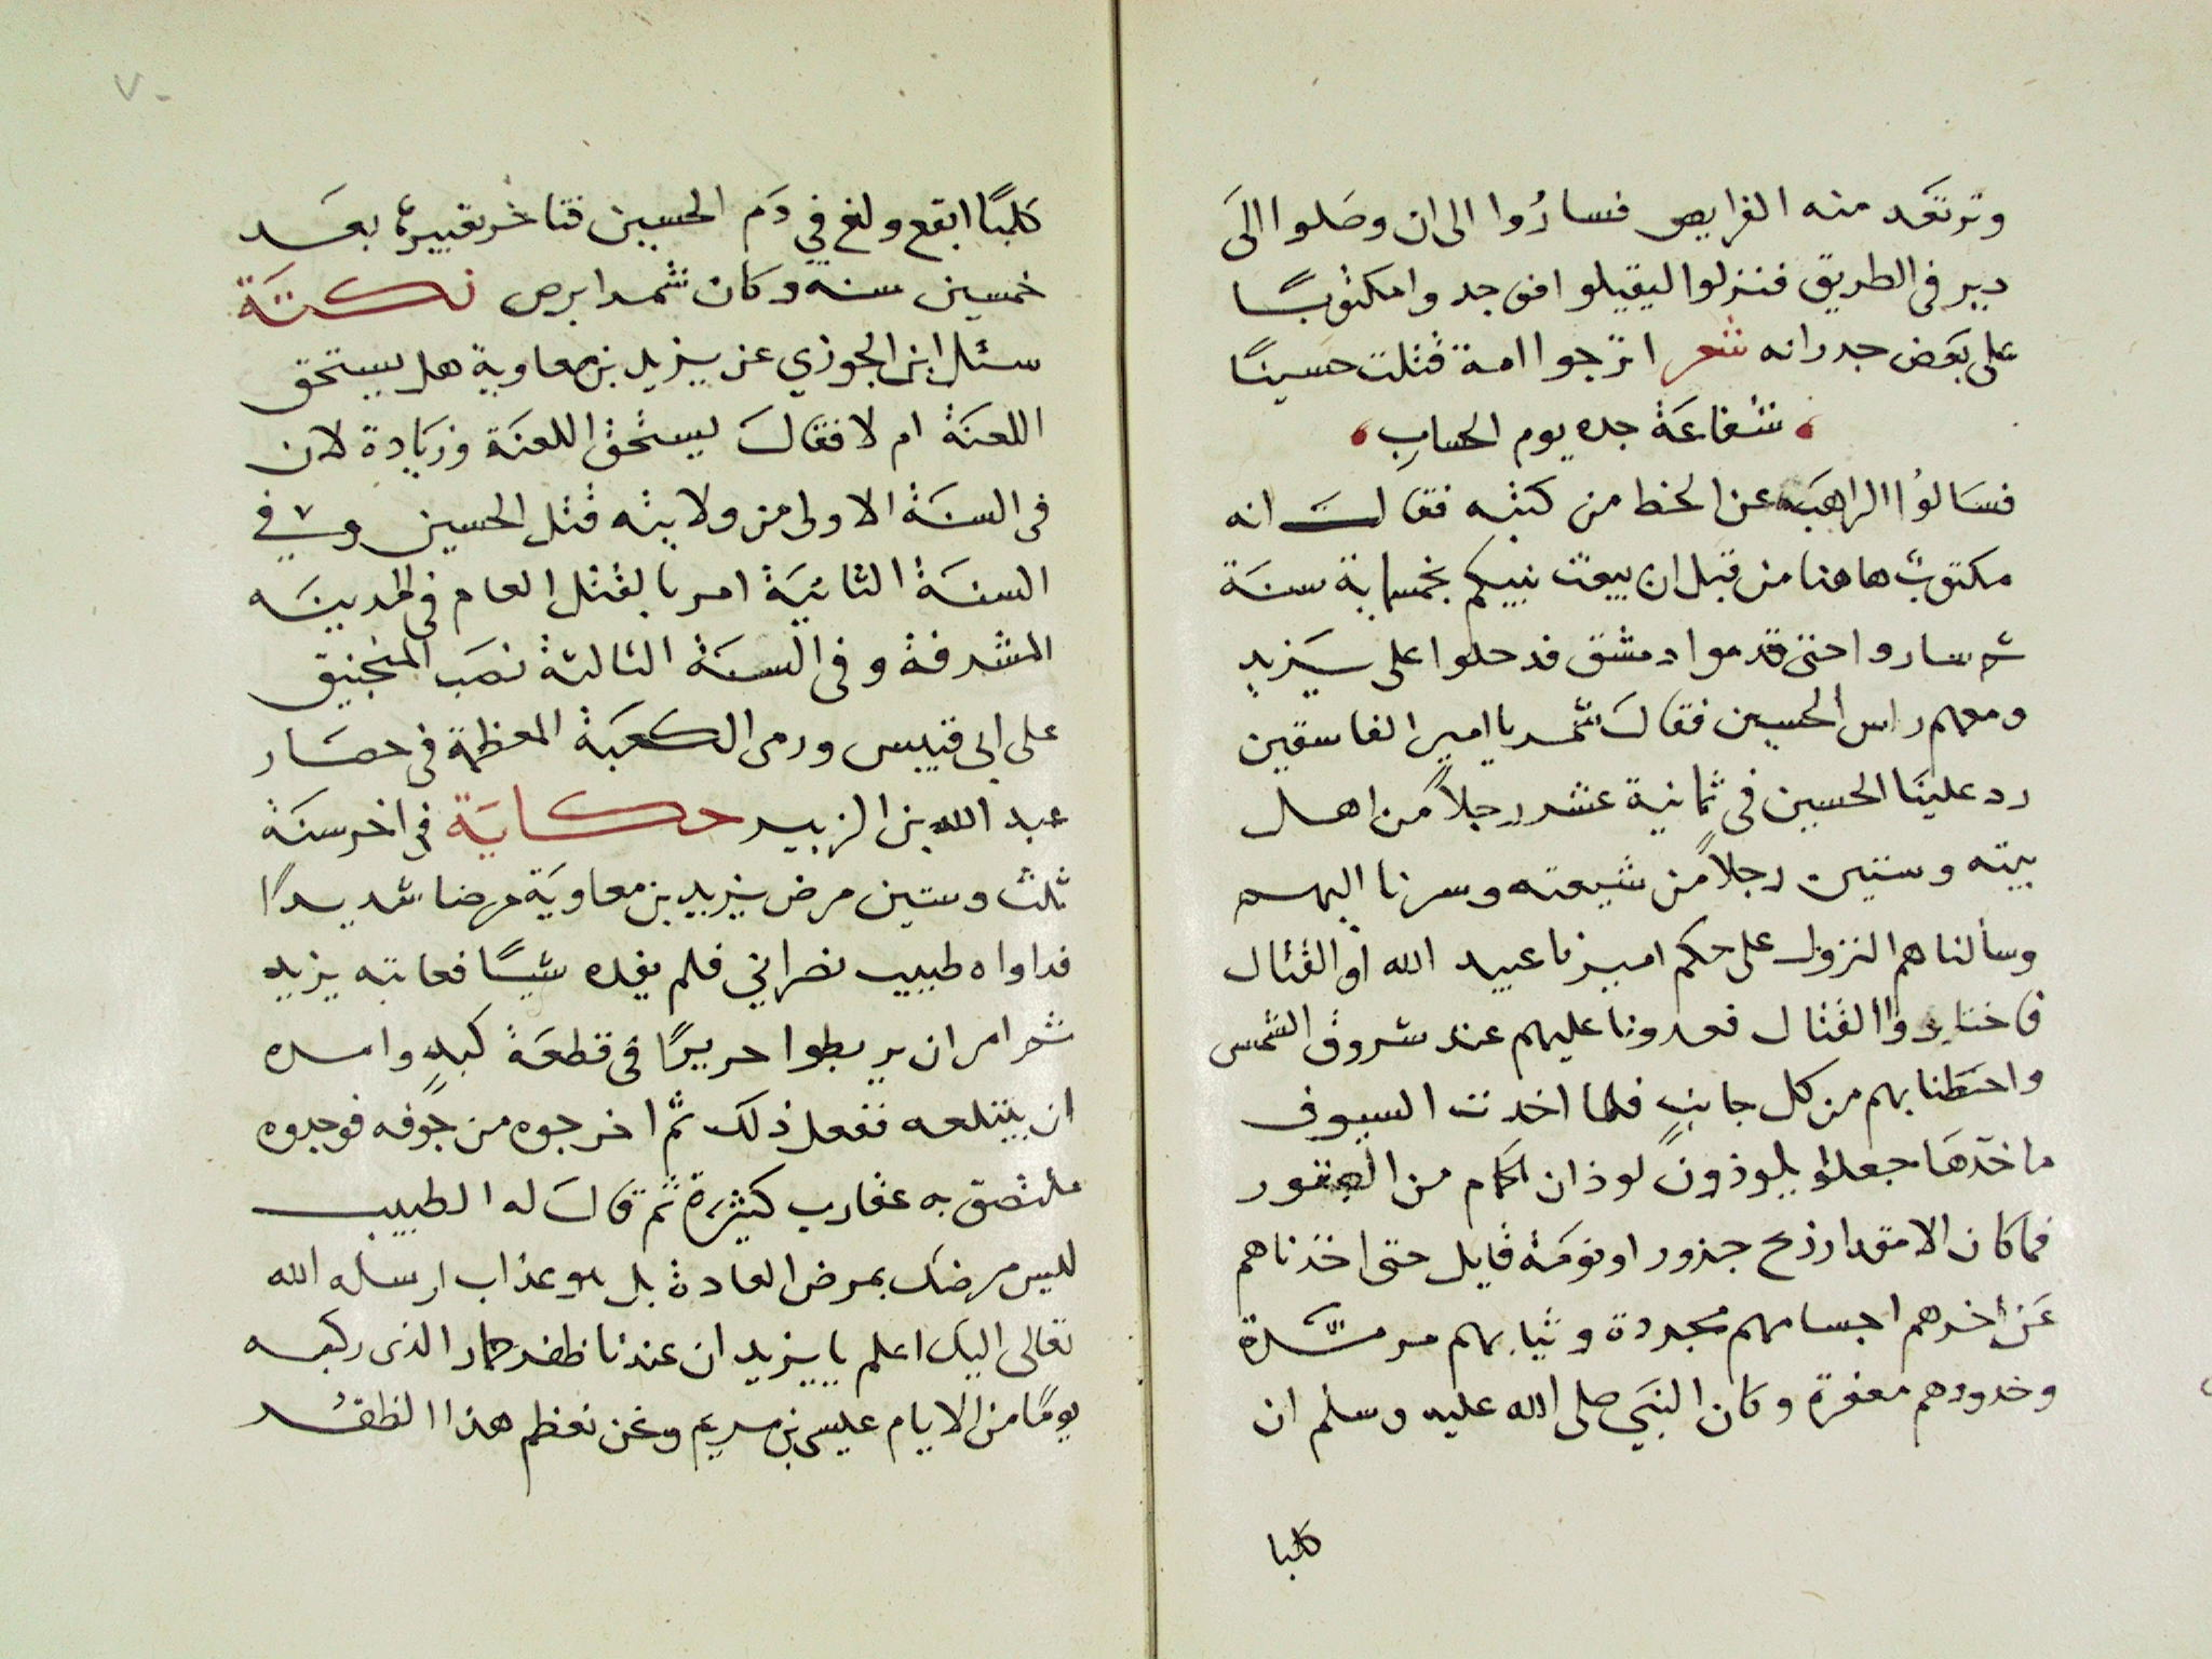 وترتعد منه الفرايص فساروا الى ان وصلوا الى
دير فى الطريق فنزلوا ليقيلوا فوجدوا مكتوبًا
على بعض جدرانه شعر اترجوا امة قتلت حسينًا
شفاعة جده يوم الحساب
فسالوا الراهب عن الخط من كتبه فقال انه
مكتوب هاهنا من قبل ان يبعث نبيكم بخمسماية سنة
ثم ساروا حتى قدموا دمشق فدخلوا على يزيد
ومعهم راس الحسين فقال شمر يا امير الفاسقين
رد علينا الحسين فى ثمانية عشر رجلاً من اهل
بيته وستين رجلاً من شيعته وسرنا اليهم
وسألناهم النزول على حكم اميرنا عبيد الله او القتال
فاختاروا القتال فعدونا عليهم عند شروق الشمس
واحتطنا بهم من كل جانب فلما اخذت السيوف
ماخذها جعلوا يلوذون لوذان الحمام من الصقور
فما كان الا مقدار ذبح جزور او نومة قايل حتى اخذناهم
عن اخرهم اجسامهم مجردة وثيابهم مرمّلة
وخدودهم معفرة وكان النبي صلى الله عليه وسلم ان
كلبا
٧٠
كلبًا ابقع ولغ في دم الحسين فتاخر تعبيره بعد
خمسين سنة وكان شمر ابرص نكتة
سئل ابن الجوزي عن يزيد بن معاوية هل يستحق
اللعنة ام لا فقال يستحق اللعنة وزيادة لان
فى السنة الاولى من ولايته قتل الحسين وفي
السنة الثانية امر بالقتل العام فى المدينه
المشرفة وفى السنة الثالثة نصب المنجنيق
على ابى قبيس ورمى الكعبة المعظمة فى حصار
عبد الله بن الزبير حكاية فى اخر سنة
ثلث وستين مرض يزيد بن معاوية مرضا شديدًا
فداواه طبيب نصراني فلم يفده شيئًا فعاتبه يزيد
ثم امر ان يربطوا حريرًا فى قطعة كبد وامره
ان يبتلعه ففعل ذلك ثم اخرجوه من جوفه فوجدوه
ملتصق به عقارب كثيرة ثم قال له الطبيب
ليس مرضك بمرض العادة بل هو عذاب ارسله الله
تعالى اليك اعلم يا يزيد ان عندنا ظفر حمار الذى ركبه
يومًا من الايام عيسى بن مريم ونحن نعظم هذا الظفر